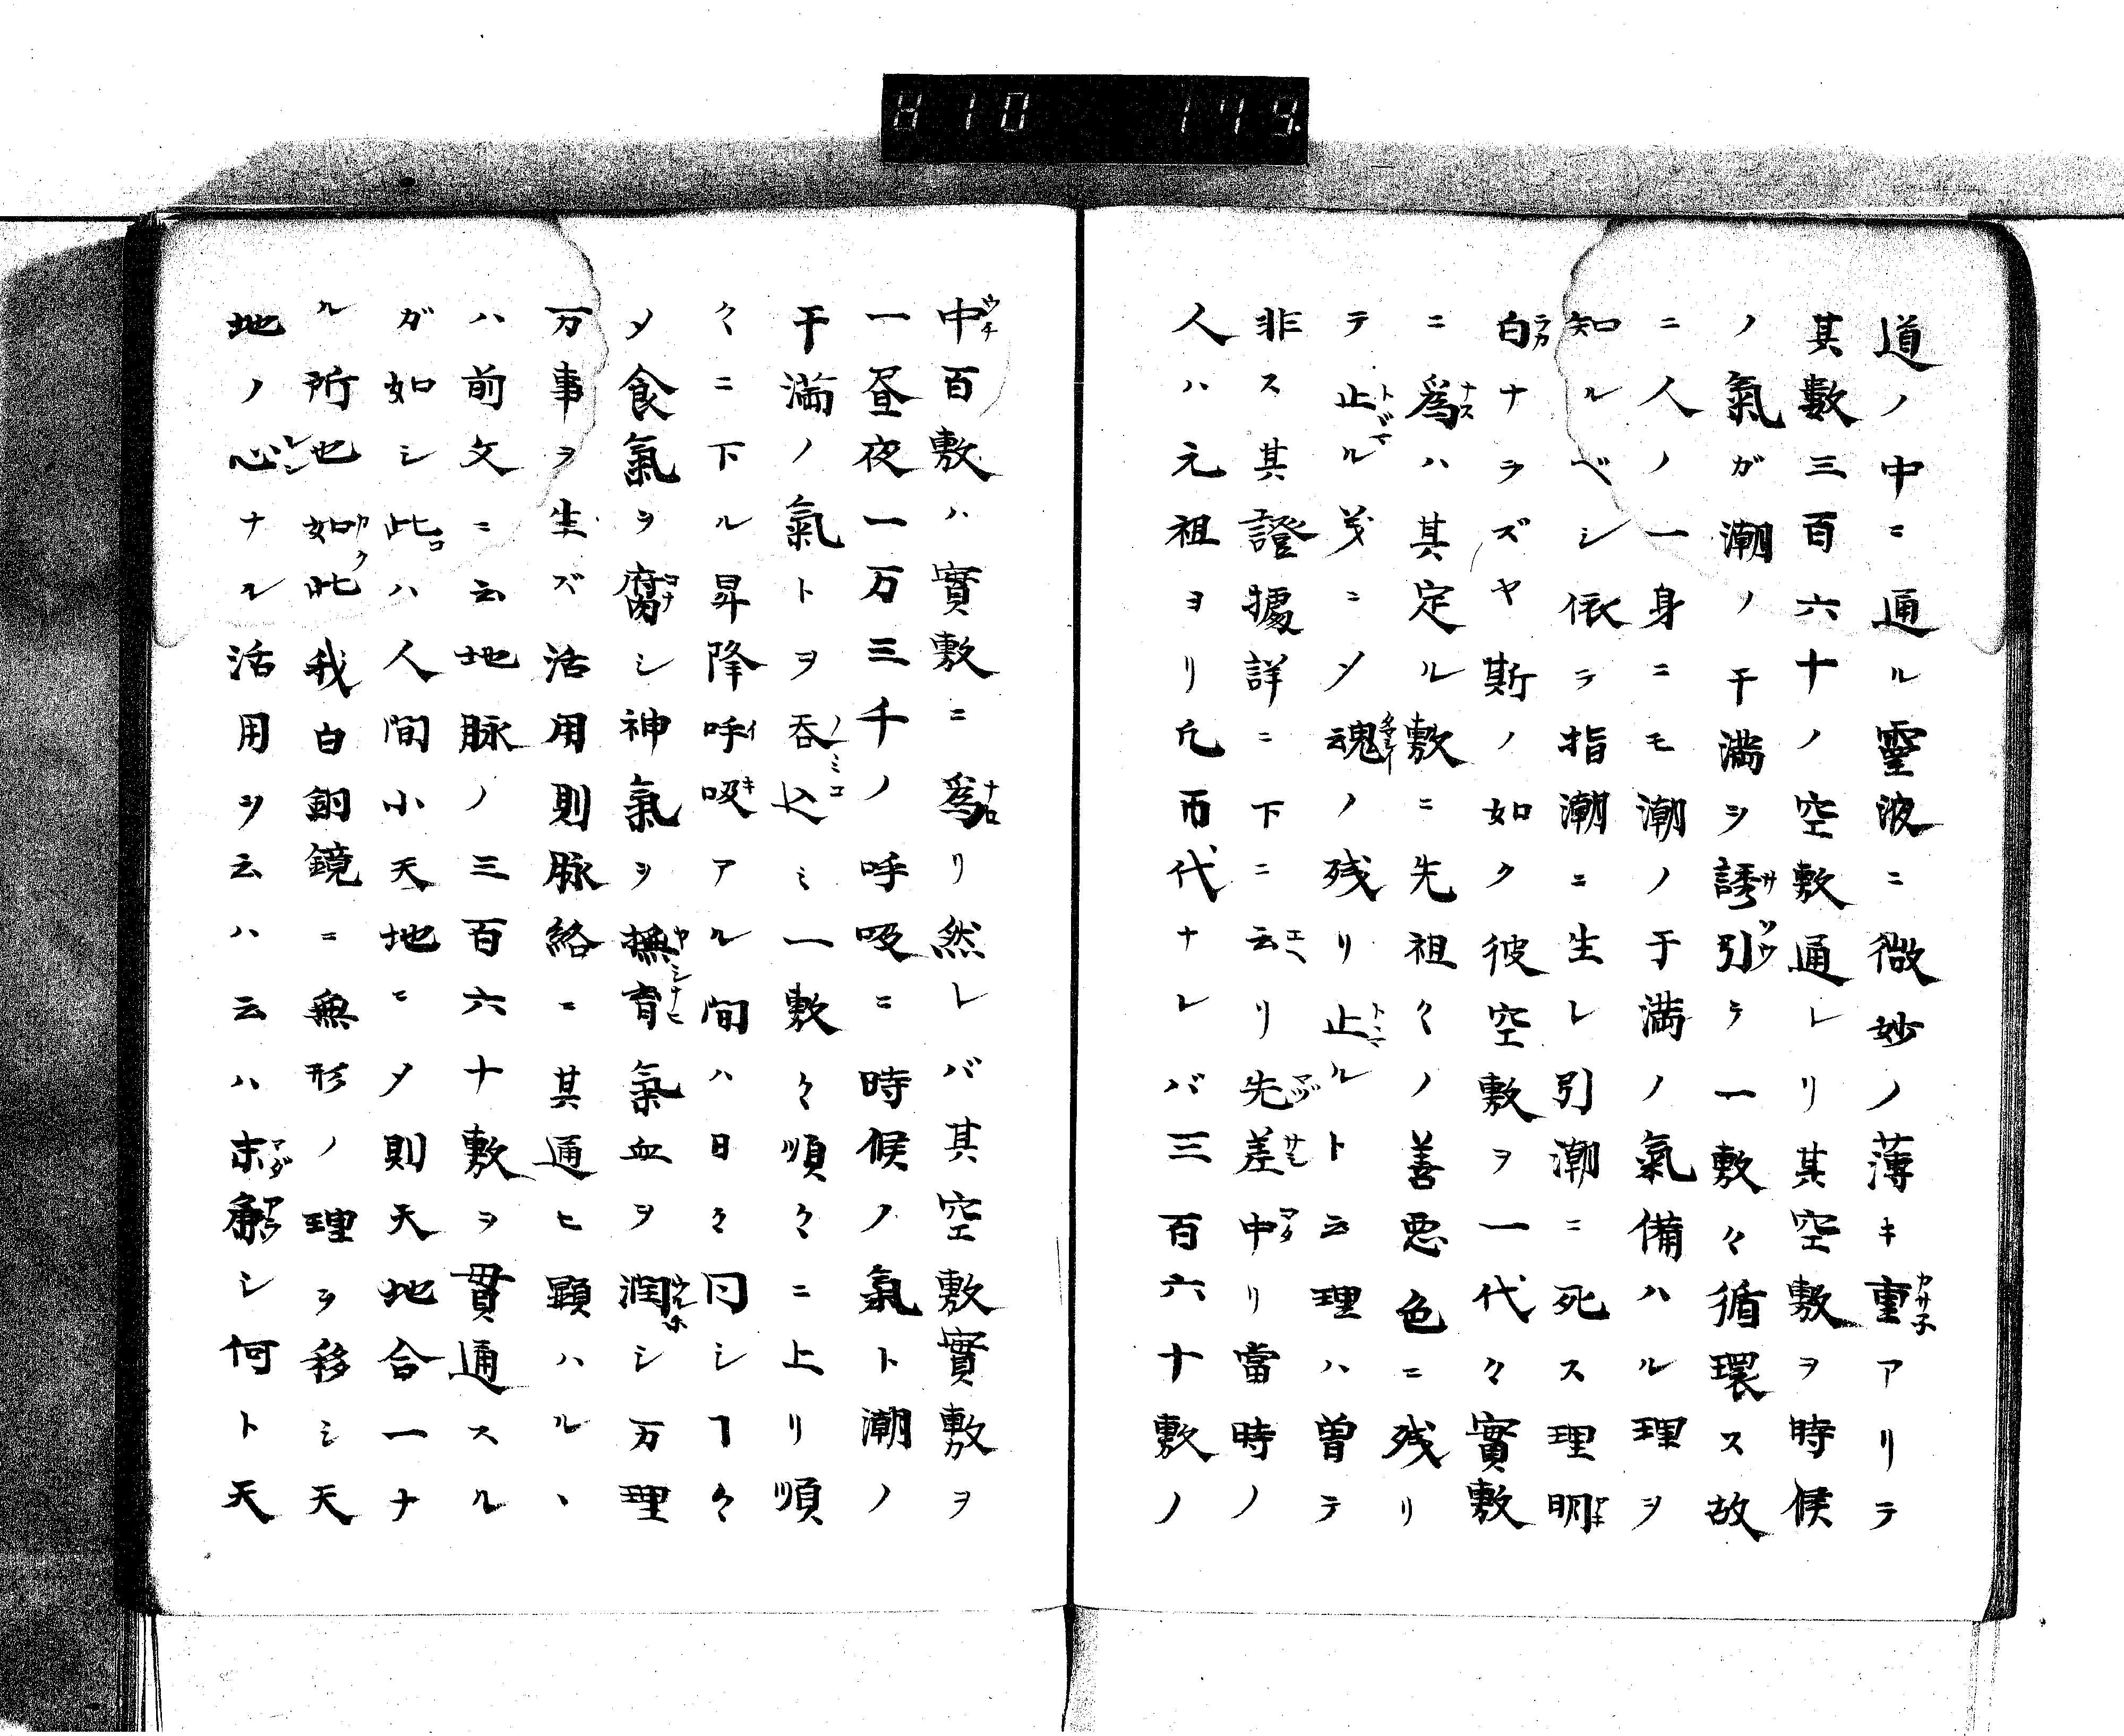 H10 179.
道ノ中ニ通ル靈液ニ微妙ノ薄キ重アリテ
其數三百六十ノ空敷通レリ其空敷ヲ時候
ノ氣ガ潮ノ干満ヲ誘引テ一敷々循環ス故
ニ人ノ一身ニモ潮ノ干満ノ氣備ハル理ヲ
知ルベシ依ラ指潮ニ生レ引潮ニ死ス理明
白ナラズヤ斯ノ如ク彼空敷ヲ一代々實敷
ニ爲ハ其定ル敷ニ先祖々ノ善悪色ニ残リ
テ止ル㒵ニメ魂ノ残リ止ルト云理ハ曽テ
非ス其證據詳ニ下ニ云リ先差中リ當時ノ
人ハ元祖ヨリ凢而代ナレバ三百六十敷ノ
中百敷ハ實敷ニ爲リ然レバ其空敷實敷ヲ
一昼夜一万三千ノ呼吸ニ時候ノ氣ト潮ノ
干満ノ氣トヲ呑込ミ一敷々順々ニ上リ順
々ニ下ル昇降呼吸アル間ハ日々同シヿ々
メ食氣ヲ腐シ神氣ヲ撫育氣血ヲ潤シ万理
万事ヲ生ズ活用則脉絡ニ其通ヒ顕ハルヽ
ハ前文ニ云地脉ノ三百六十敷ヲ貫通スル
ガ如シ此ハ人間小天地ニメ則天地合一ナ
ル所也如此我白銅鏡ニ無形ノ理ヲ移シ天
地ノ心ナル活用ヲ云ハ云ハ未解シ何ト天